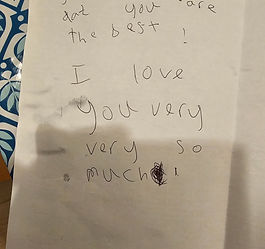 dat you are
the best!
I love
you very
very so
much!